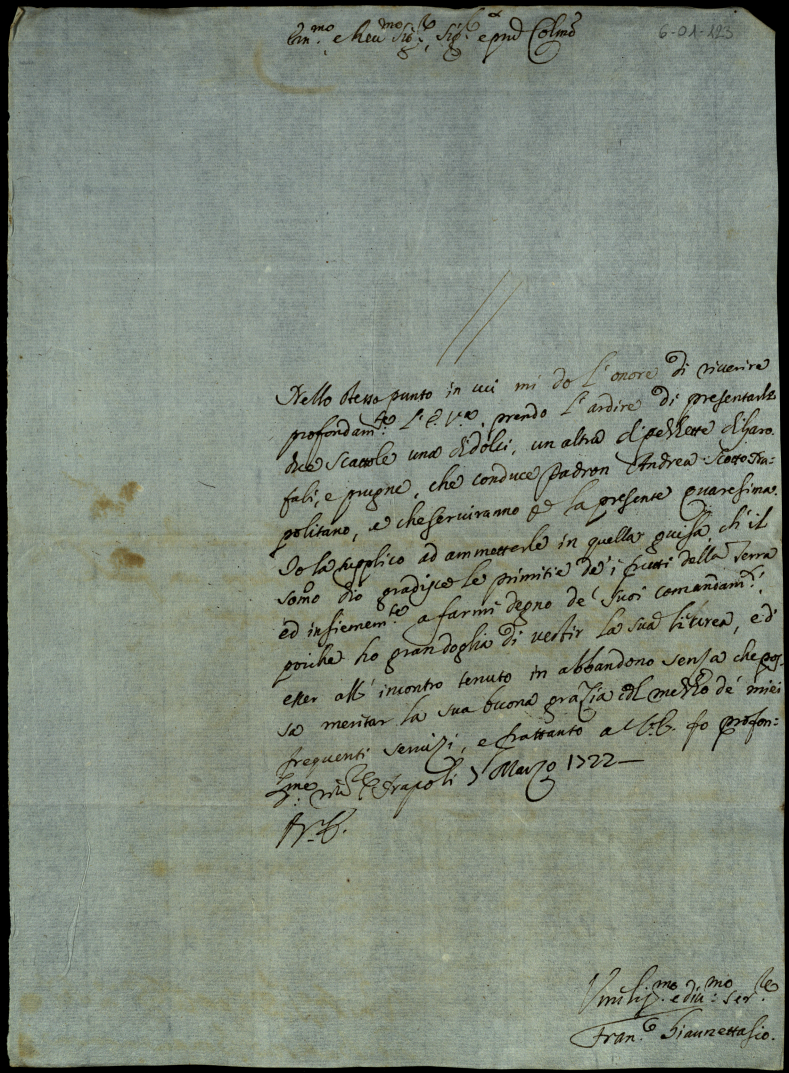 6-01-123
Em.mo e Reu.mo Sig.re, Sig.re e pnē Colmō
Nello stesso punto in cui mi do l'onore di riverire
profondam.te l'E. V.a, prendo l'ardire di presentarle
due scattole una di dolci, un altra di pezzette di Garo=
fali, e prugne, che conduce Padron Andrea Scotto Na=
politano, e che serviranno p la presente quaresima.
Io la supplico ad ammetterle in quella guisa, ch'il
somō Dio gradisce le primitie de' i frutti della Terra
ed insiemem.te a farmi degno de' suoi comandam.ti,
poiche ho gran doglia di vestir la sua liurea, e d'
esser all'incontro tenuto in abbandono senza che pos=
sa meritar la sua buona grazia col mezzo de' miei
frequenti servizj, e frattanto a V. E. fo profon=
d.me riu.ze Napoli 7 Marzo 1722
Di V. E.
Vmilis.mo e diu.mo ser.re
Fran.co Giannettasio.